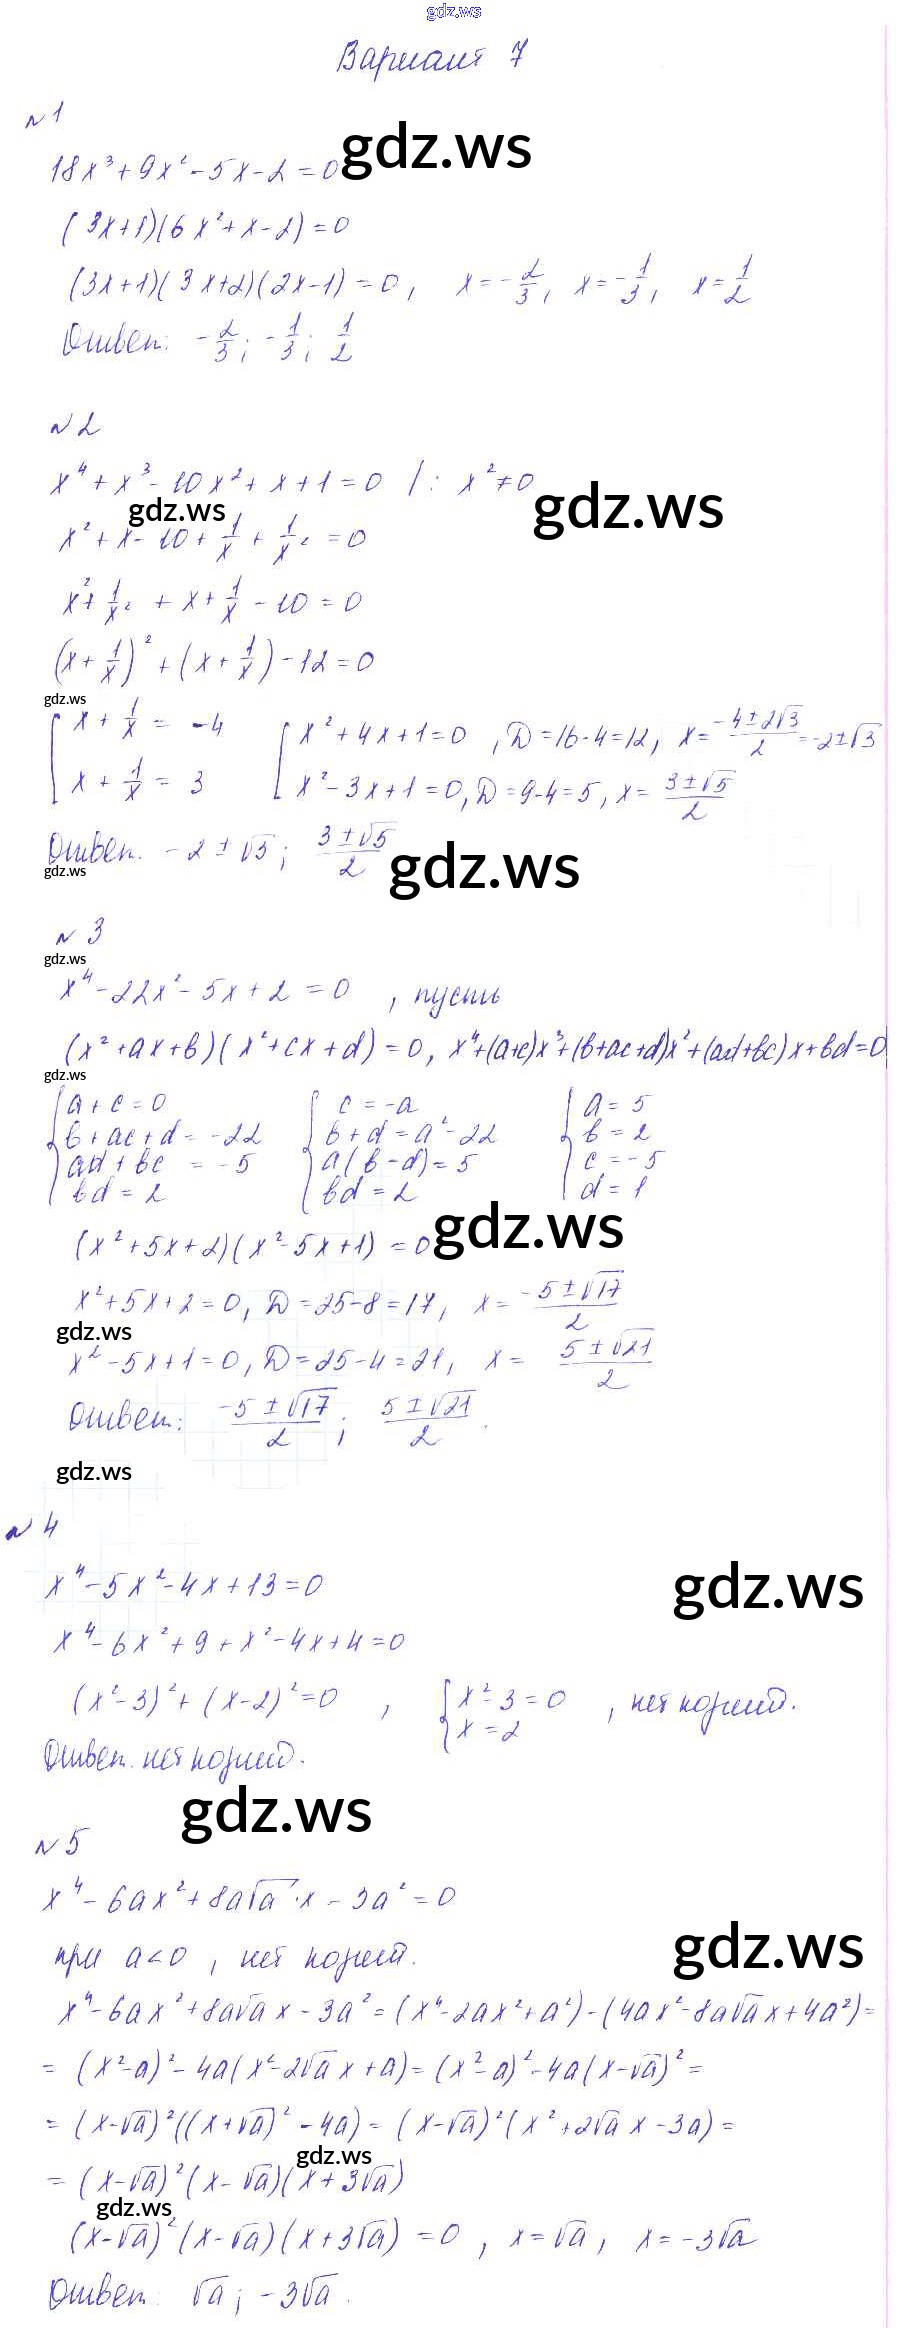 gdz.ws
Вариант 7
№1
gdz.ws
18x³+9x²-5x-2=0
(3x+1)(6x²+x-2)=0
(3x+1)(3x+2)(2x-1)=0, x=-2/3, x=-1/3, x=1/2
Ответ: -2/3; -1/3; 1/2
№2
x⁴+x³-10x²+x+1=0 |: x²≠0
gdz.ws
gdz.ws
x²+x-10+1/x+1/x²=0
x²+1/x²+x+1/x-10=0
(x+1/x)²+(x+1/x)-12=0
gdz.ws
[x+1/x=-4 [x²+4x+1=0, D=16-4=12, x=(-4±2√3)/2=-2±√3
x+1/x=3 x²-3x+1=0, D=9-4=5, x=(3±√5)/2
Ответ. -2±√3; (3±√5)/2
gdz.ws
gdz.ws
№3
gdz.ws
x⁴-22x²-5x+2=0, пусть
(x²+ax+b)(x²+cx+d)=0, x⁴+(a+c)x³+(b+ac+d)x²+(ad+bc)x+bd=0
gdz.ws
{a+c=0 {c=-a {a=5
b+ac+d=-22 b+d=a²-22 b=2
ad+bc=-5 a(b-d)=5 c=-5
bd=2 bd=2 d=1
gdz.ws
(x²+5x+2)(x²-5x+1)=0
x²+5x+2=0, D=25-8=17, x=(-5±√17)/2
gdz.ws
x²-5x+1=0, D=25-4=21, x=(5±√21)/2
Ответ: (-5±√17)/2; (5±√21)/2.
gdz.ws
№4
x⁴-5x²-4x+13=0
gdz.ws
x⁴-6x²+9+x²-4x+4=0
(x²-3)²+(x-2)²=0, {x²-3=0, нет корней.
x=2
Ответ. нет корней.
gdz.ws
№5
x⁴-6ax²+8a√a·x-3a²=0
gdz.ws
при a<0, нет корней.
x⁴-6ax²+8a√a x-3a²=(x⁴-2ax²+a²)-(4ax²-8a√a x+4a²)=
=(x²-a)²-4a(x²-2√a x+a)=(x²-a)²-4a(x-√a)²=
=(x-√a)²((x+√a)²-4a)=(x-√a)²(x²+2√a x-3a)=
gdz.ws
=(x-√a)²(x-√a)(x+3√a)
gdz.ws
(x-√a)²(x-√a)(x+3√a)=0, x=√a, x=-3√a
Ответ: √a; -3√a.